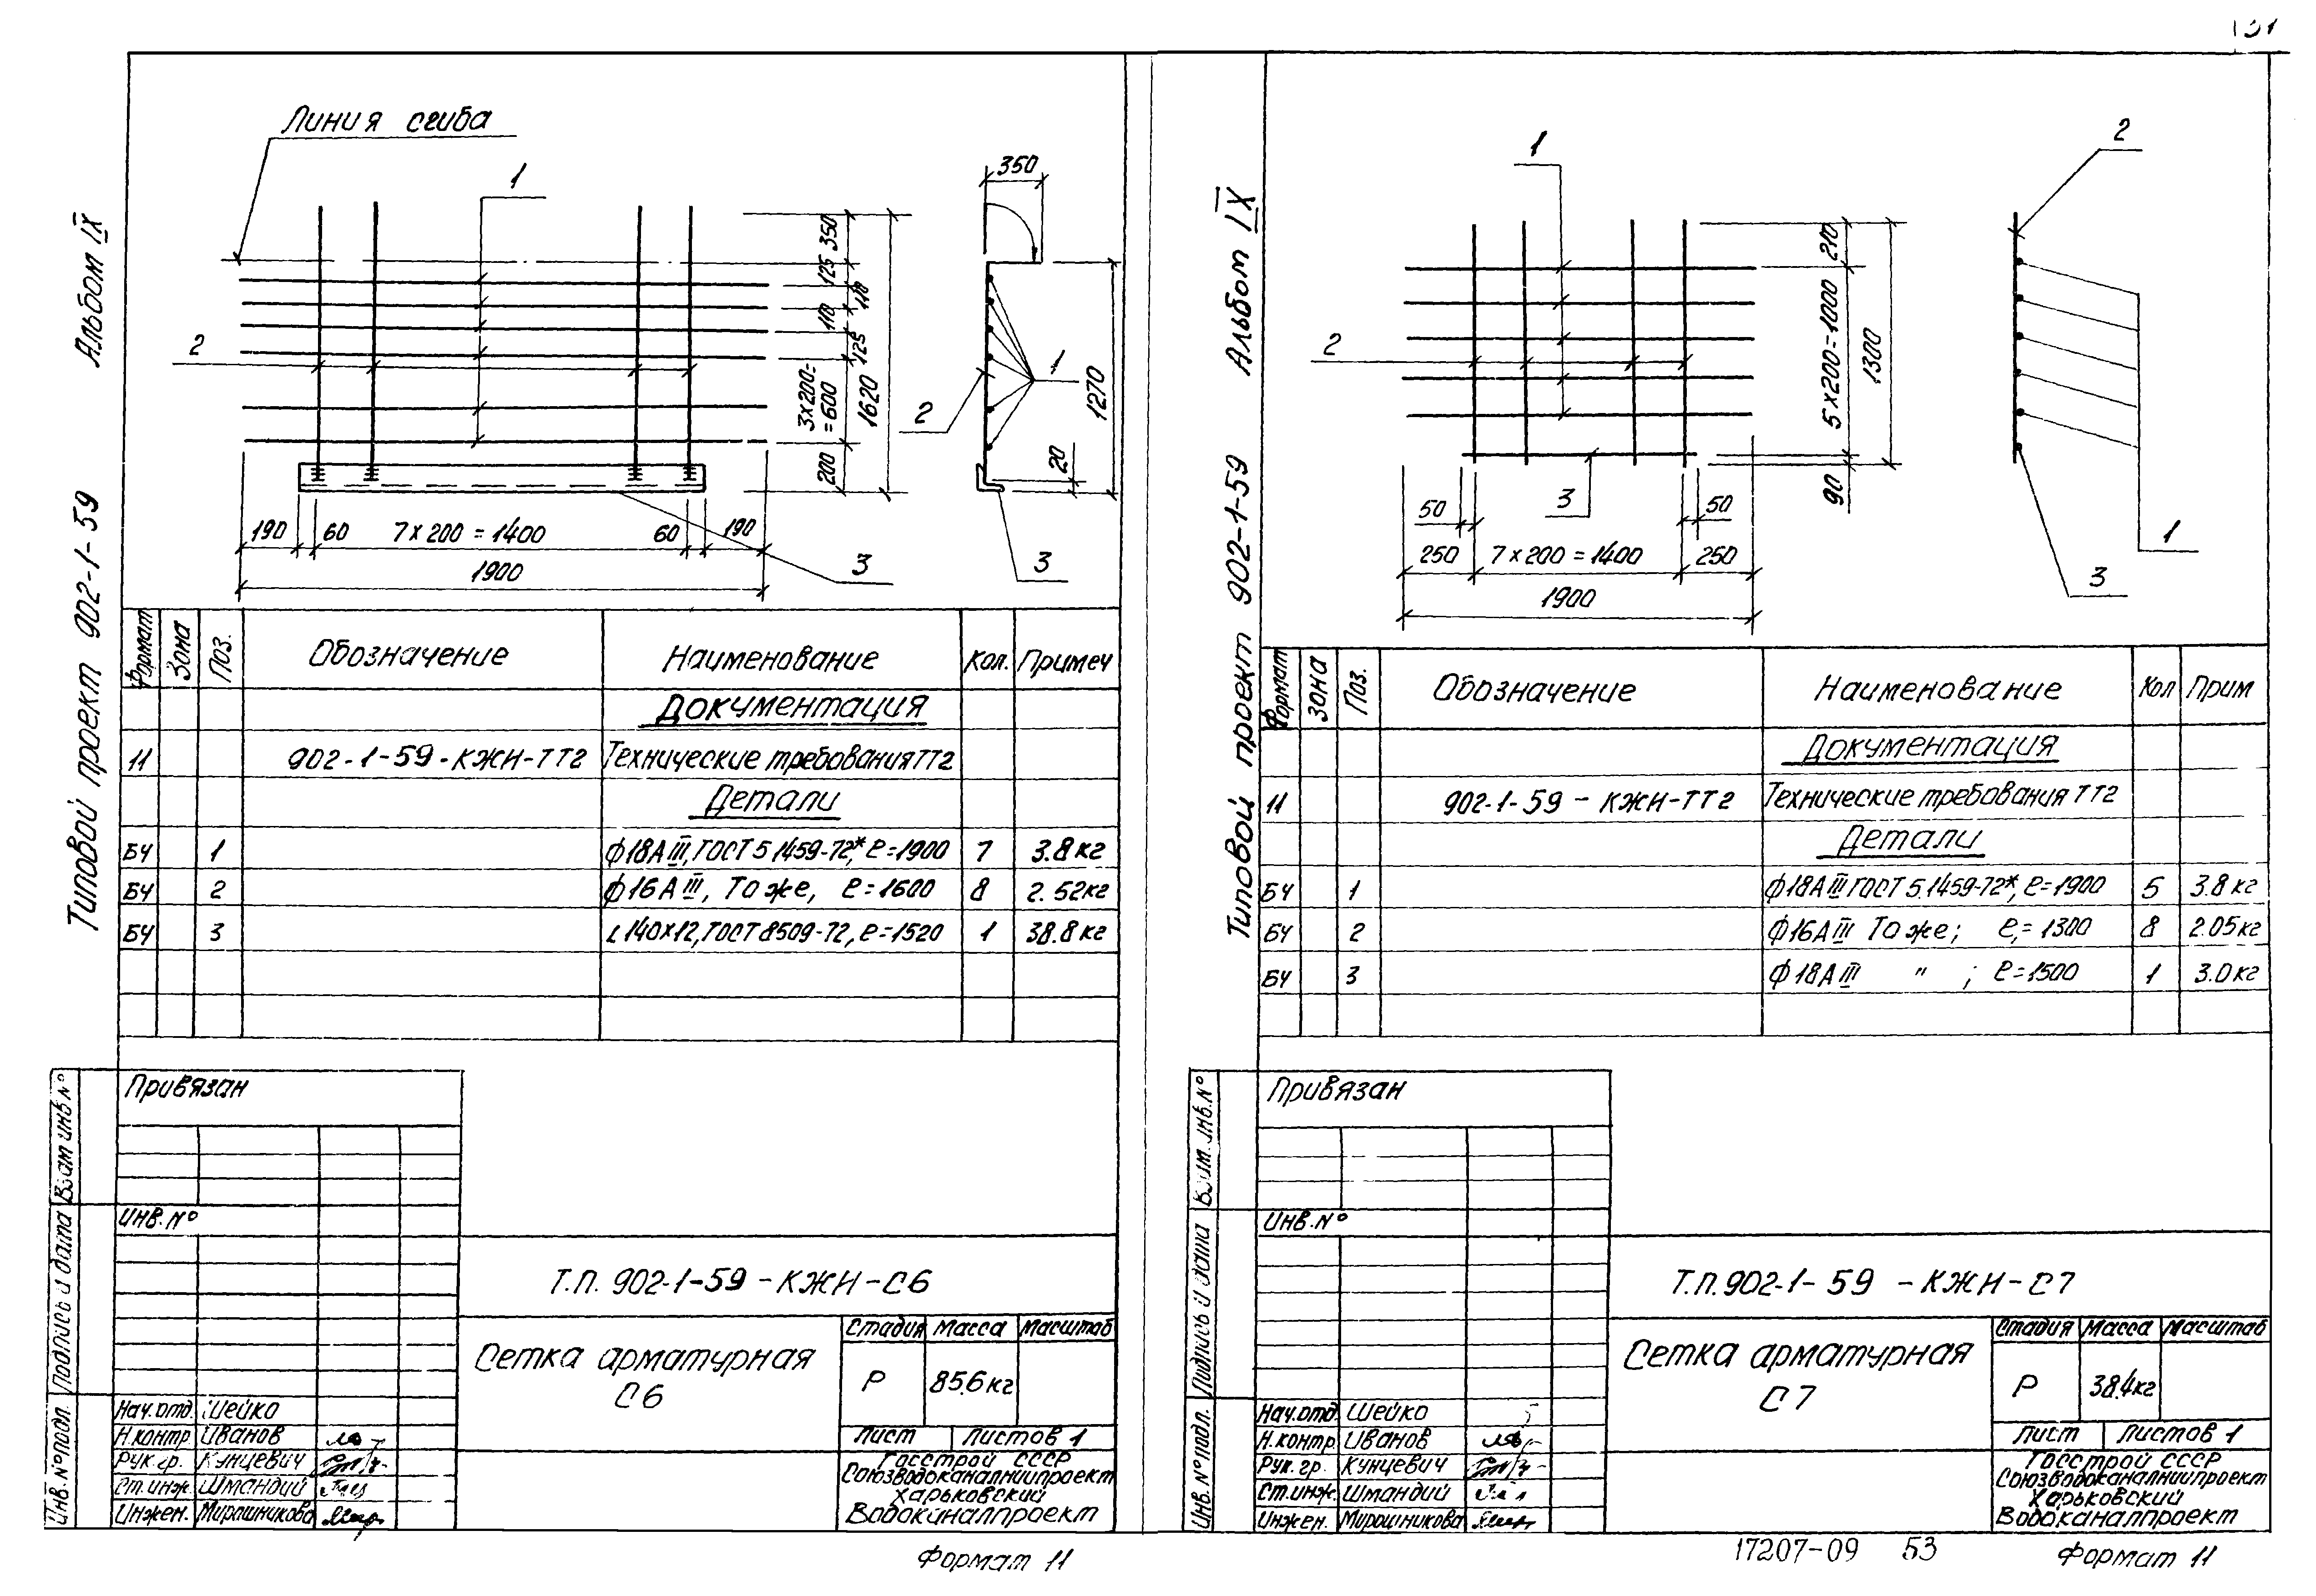 Линия сгиба
1
2
350
125
110
110
125
3×200=
=600
200
1620
190
60
7×200=1400
60
190
1900
3
350
1
2
20
1270
3
Альбом IX
Типовой проект 902-1-59
Формат Зона Поз. Обозначение Наименование Кол. Примеч
Документация
11 902-1-59-КЖИ-ТТ2 Технические требования ТТ2
Детали
БЧ 1 ф18АIII, ГОСТ 5.1459-72*, ℓ=1900 7 3.8кг
БЧ 2 ф16АIII, То же, ℓ=1600 8 2.52кг
БЧ 3 ∟140×12, ГОСТ 8509-72, ℓ=1520 1 38.8кг
Привязан
Инв.№
Т.П. 902-1-59-КЖИ-С6
Сетка арматурная
С6
Стадия Масса Масштаб
Р 85.6кг
Лист Листов 1
Госстрой СССР
Союзводоканалниипроект
Харьковский
Водоканалпроект
Нач.отд. Шейко
Н.контр Иванов
Рук.гр. Кунцевич
Ст.инж. Шмандий
Инжен. Мирошникова
Взам инв №
Подпись и дата
Инв.№подл.
Формат 11
1
2
3
210
5×200=1000
90
1300
50
50
250
7×200=1400
250
1900
2
1
3
Альбом IX
Типовой проект 902-1-59
Формат Зона Поз. Обозначение Наименование Кол Прим
Документация
11 902-1-59-КЖИ-ТТ2 Технические требования ТТ2
Детали
БЧ 1 ф18АIII ГОСТ 5.1459-72*, ℓ=1900 5 3.8кг
БЧ 2 ф16АIII То же; ℓ=1300 8 2.05кг
БЧ 3 ф18АIII " ; ℓ=1500 1 3.0кг
Привязан
Инв.№
Т.П.902-1-59-КЖИ-С7
Сетка арматурная
С7
Стадия Масса Масштаб
Р 38.4кг
Лист Листов 1
Госстрой СССР
Союзводоканалниипроект
Харьковский
Водоканалпроект
Нач.отд. Шейко
Н.контр. Иванов
Рук.гр. Кунцевич
Ст.инж. Шмандий
Инжен. Мирошникова
Взам.инв.№
Подпись и дата
Инв.№подл.
17207-09 53
Формат 11